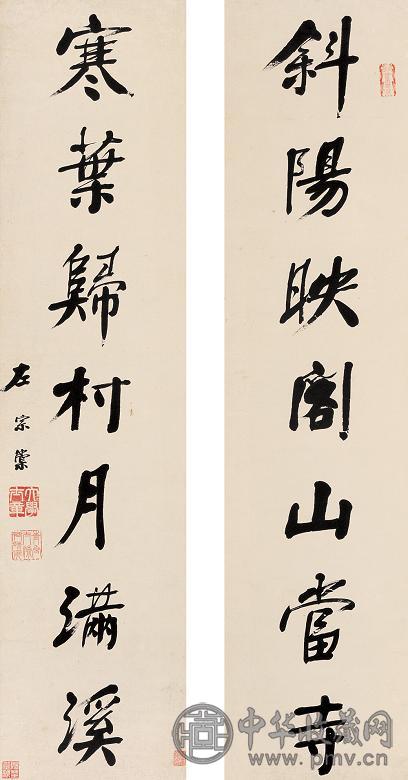 斜陽映閣山當寺
寒葉歸村月滿溪
左宗棠
中华收藏网
www.pmv.cn